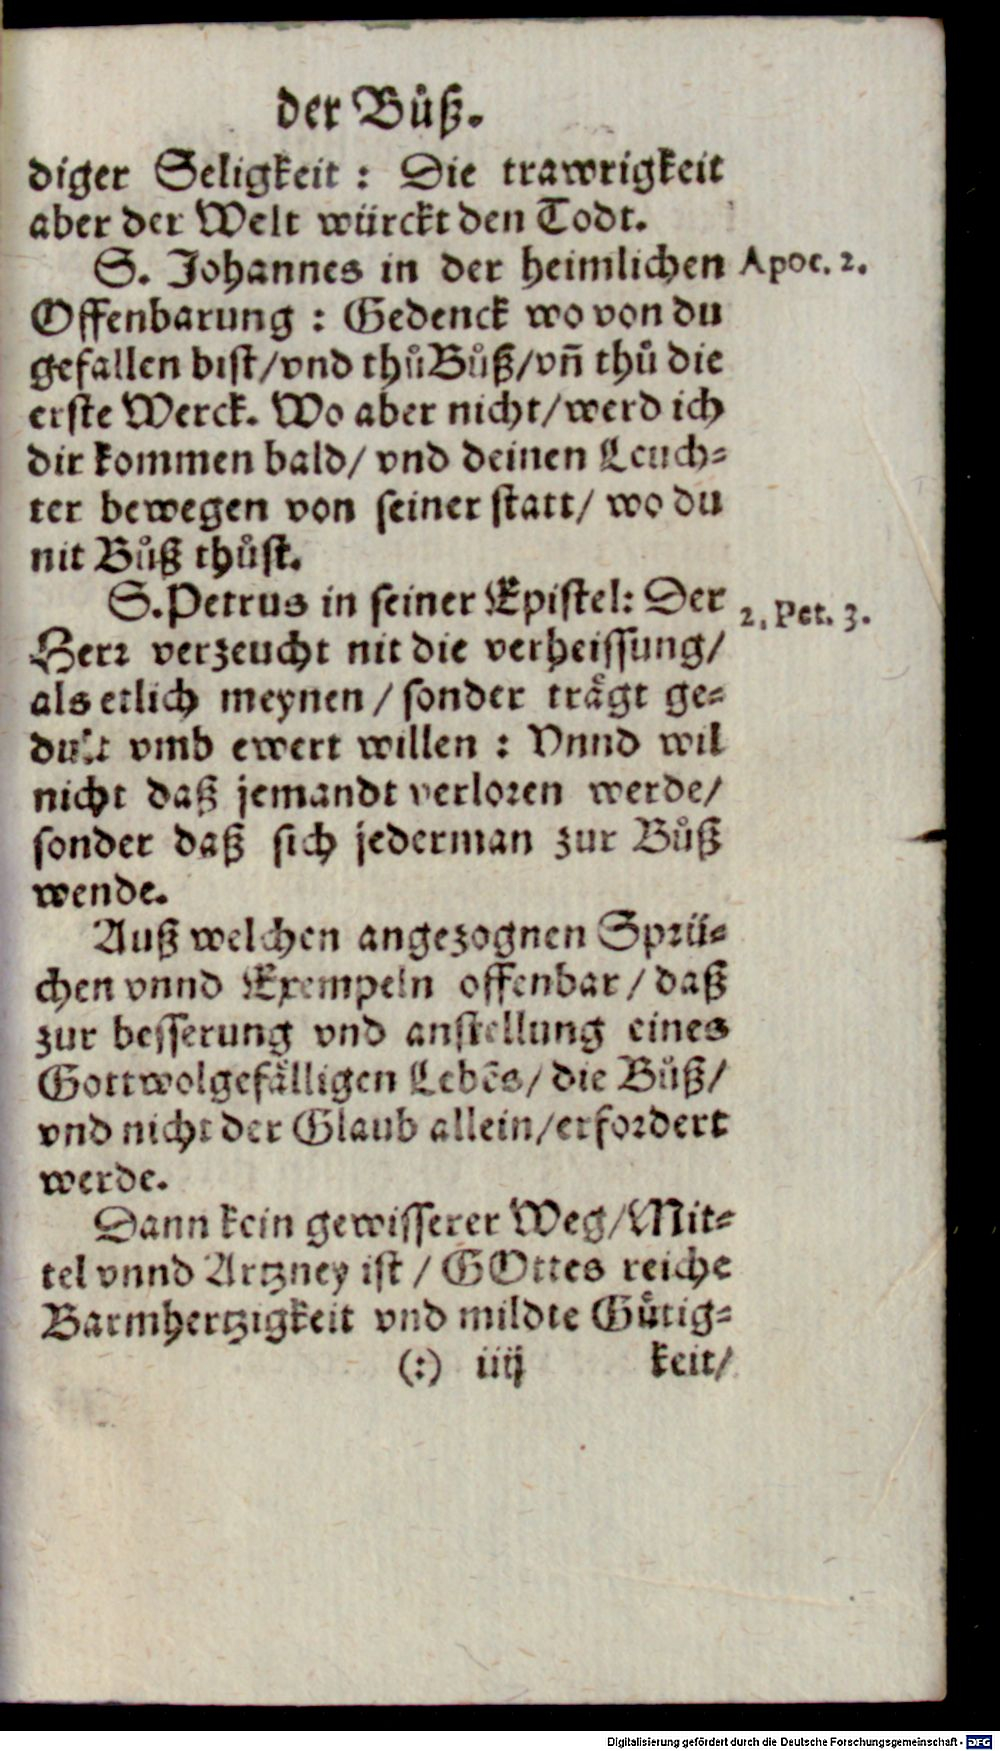 der Bůß.
diger Seligkeit : Die trawrigkeit
aber der Welt würckt den Todt.
S. Johannes in der heimlichen Apoc. 2.
Offenbarung : Gedenck wo von du
gefallen bist/vnd thů Bůß/vñ thů die
erste Werck. Wo aber nicht/werd ich
dir kommen bald/ vnd deinen Leuch⸗
ter bewegen von seiner statt/ wo du
nit Bůß thůst.
S. Petrus in seiner Epistel: Der 2. Pet. 3.
Herr verzeucht nit die verheissung/
als etlich meynen / sonder trågt ge⸗
dult vmb ewert willen : Vnnd wil
nicht daß jemandt verloren werde/
sonder daß sich jederman zur Bůß
wende.
Auß welchen angezognen Sprü⸗
chen vnnd Exempeln offenbar / daß
zur besserung vnd anstellung eines
Gottwolgefålligen Lebẽs/ die Bůß/
vnd nicht der Glaub allein/erfordert
werde.
Dann kein gewisserer Weg/Mit⸗
tel vnnd Artzney ist / GOttes reiche
Barmhertzigkeit vnd mildte Gůtig⸗
(:) iiij keit/
Digitalisierung gefördert durch die Deutsche Forschungsgemeinschaft - DFG